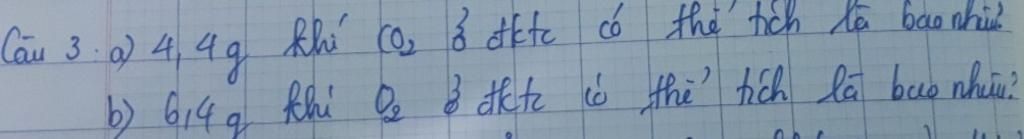 Câu 3: a) 4,4g khí CO₂ ở đktc có thể tích là bao nhiêu?
b) 6,4g khí O₂ ở đktc có thể tích là bao nhiêu?